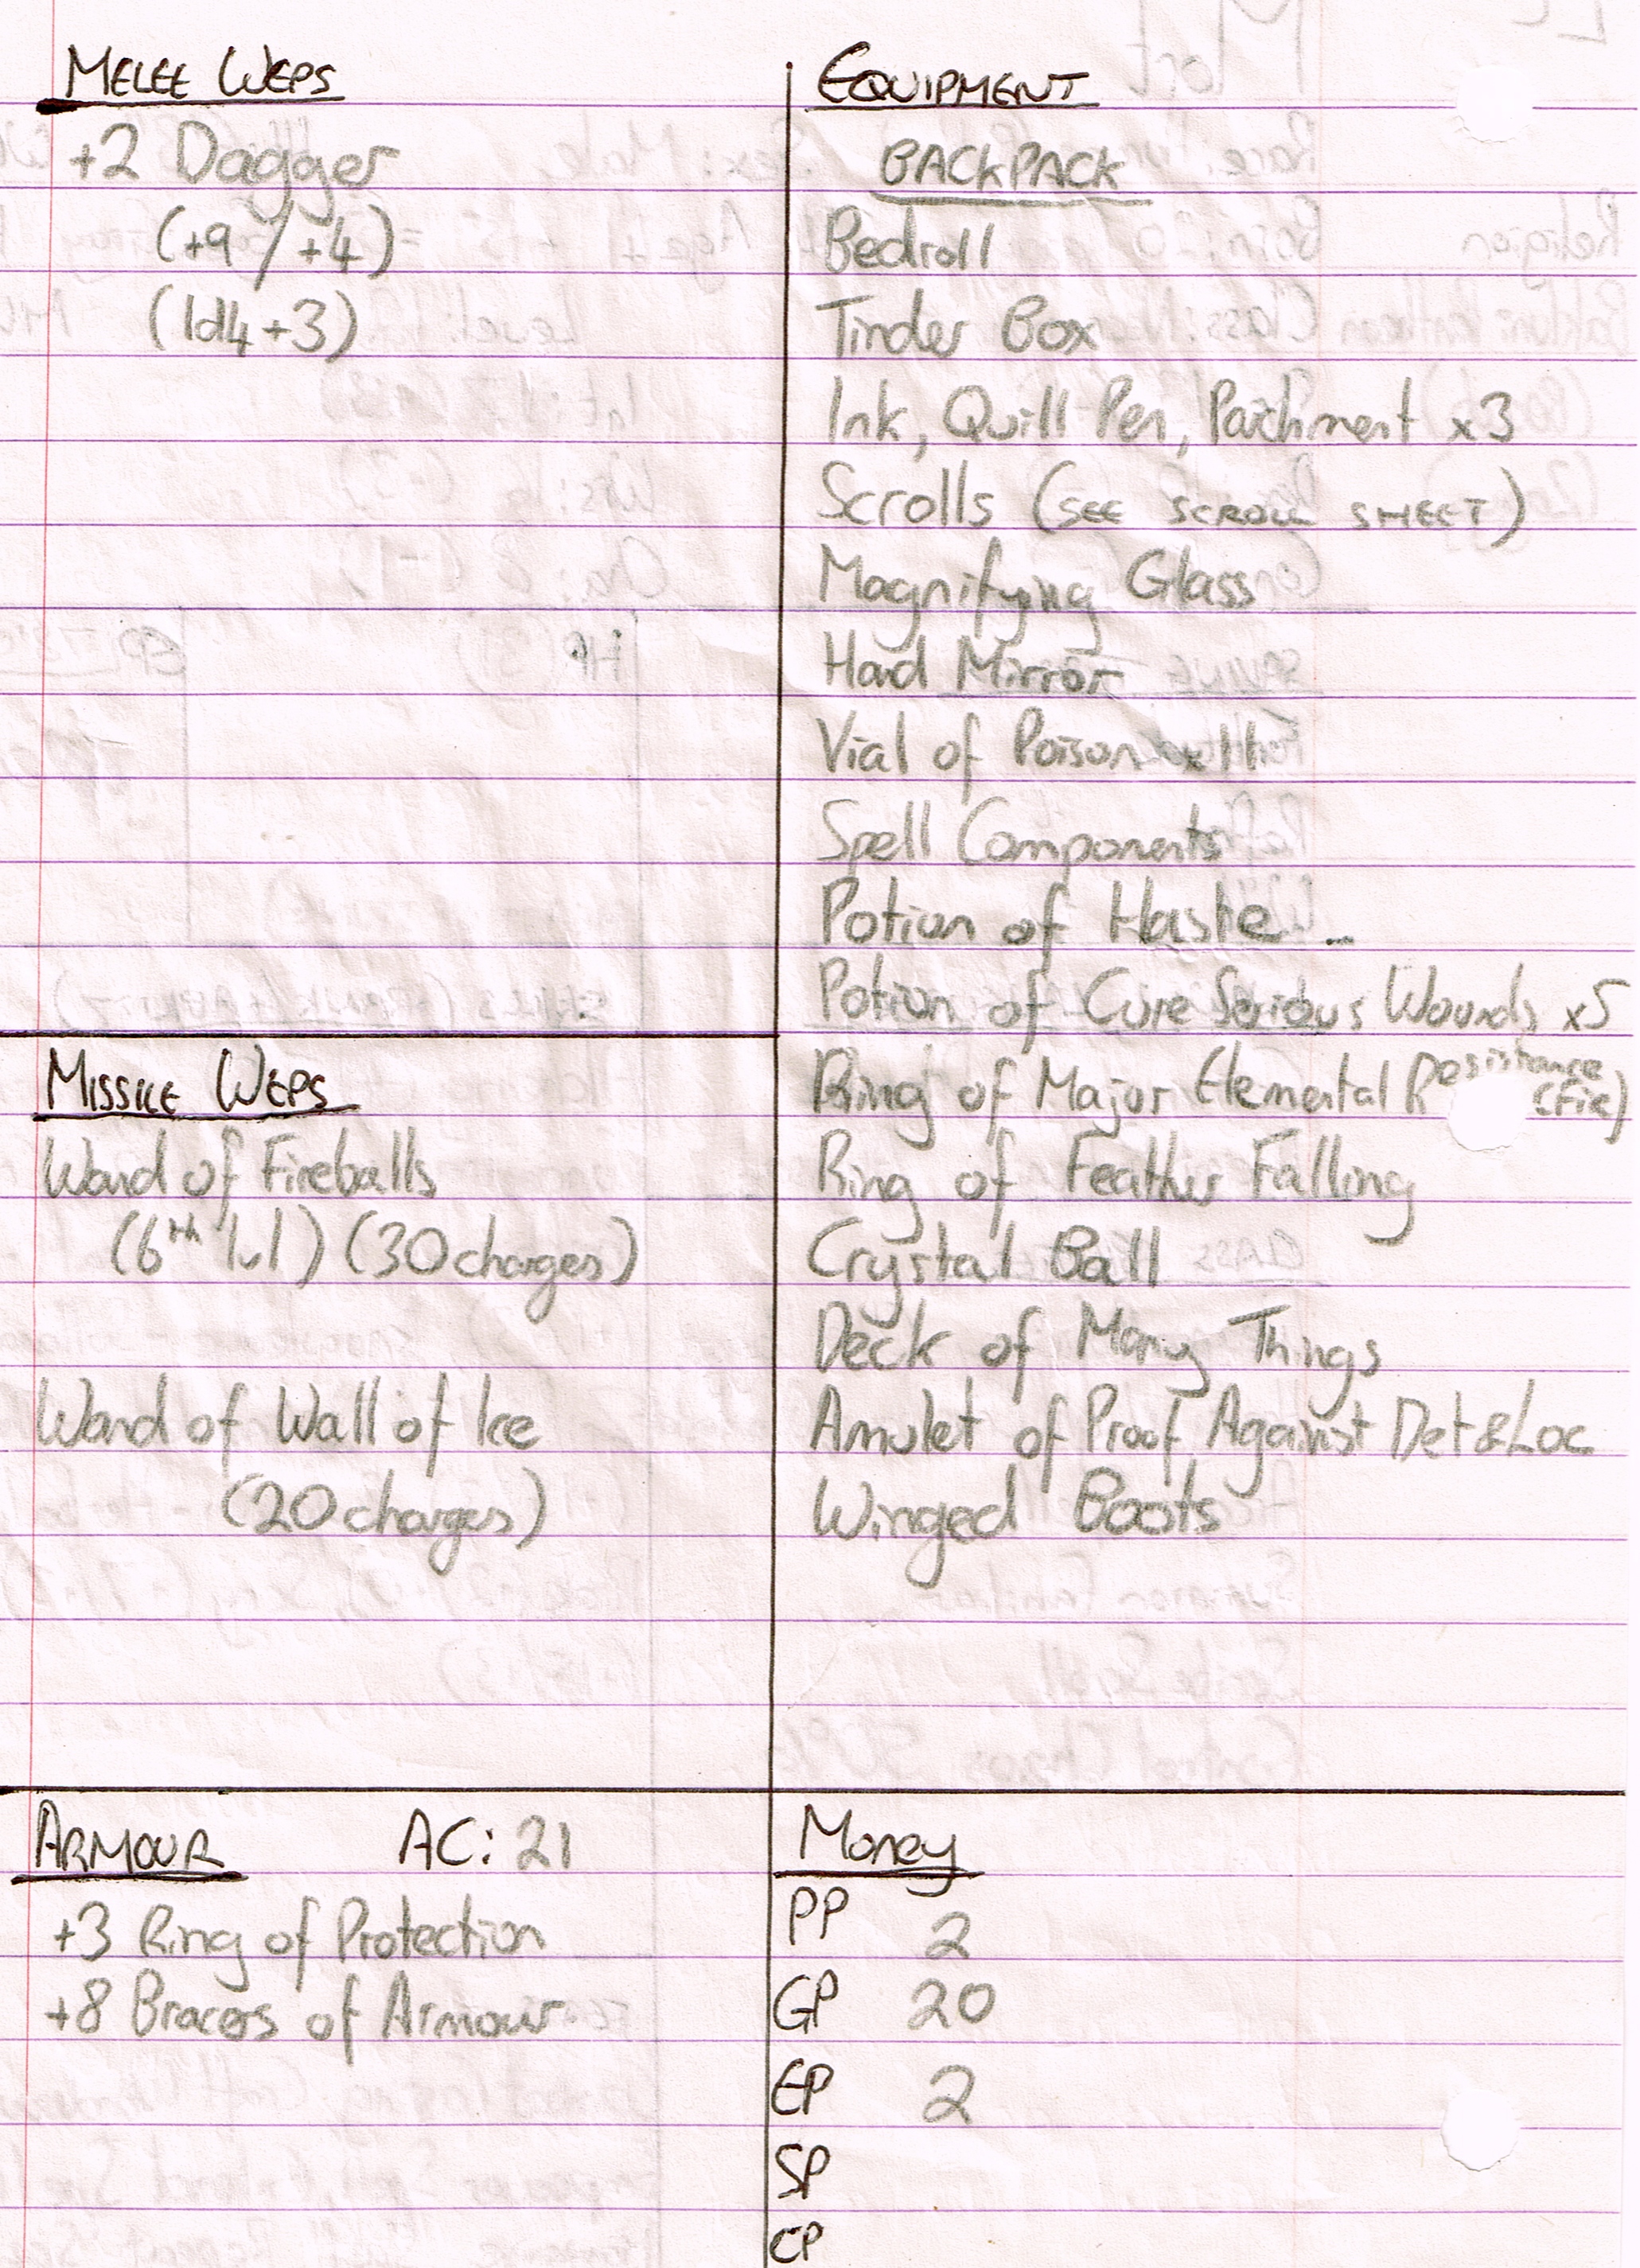 MELEE WEPS
+2 Dagger
(+9 / +4)
(1d4+3)
MISSILE WEPS
Wand of Fireballs
(6th lvl) (30 charges)
Wand of Wall of Ice
(20 charges)
ARMOUR AC: 21
+3 Ring of Protection
+8 Bracers of Armour
EQUIPMENT
BACKPACK
Bedroll
Tinder Box
Ink, Quill Pen, Parchment x3
Scrolls (SEE SCROLL SHEET)
Magnifying Glass
Hand Mirror
Vial of Poison x11
Spell Components
Potion of Haste
Potion of Cure Serious Wounds x5
Ring of Major Elemental Resistance
(Fire)
Ring of Feather Falling
Crystal Ball
Deck of Many Things
Amulet of Proof Against Det & Loc
Winged Boots
Money
PP 2
GP 20
EP 2
SP
CP